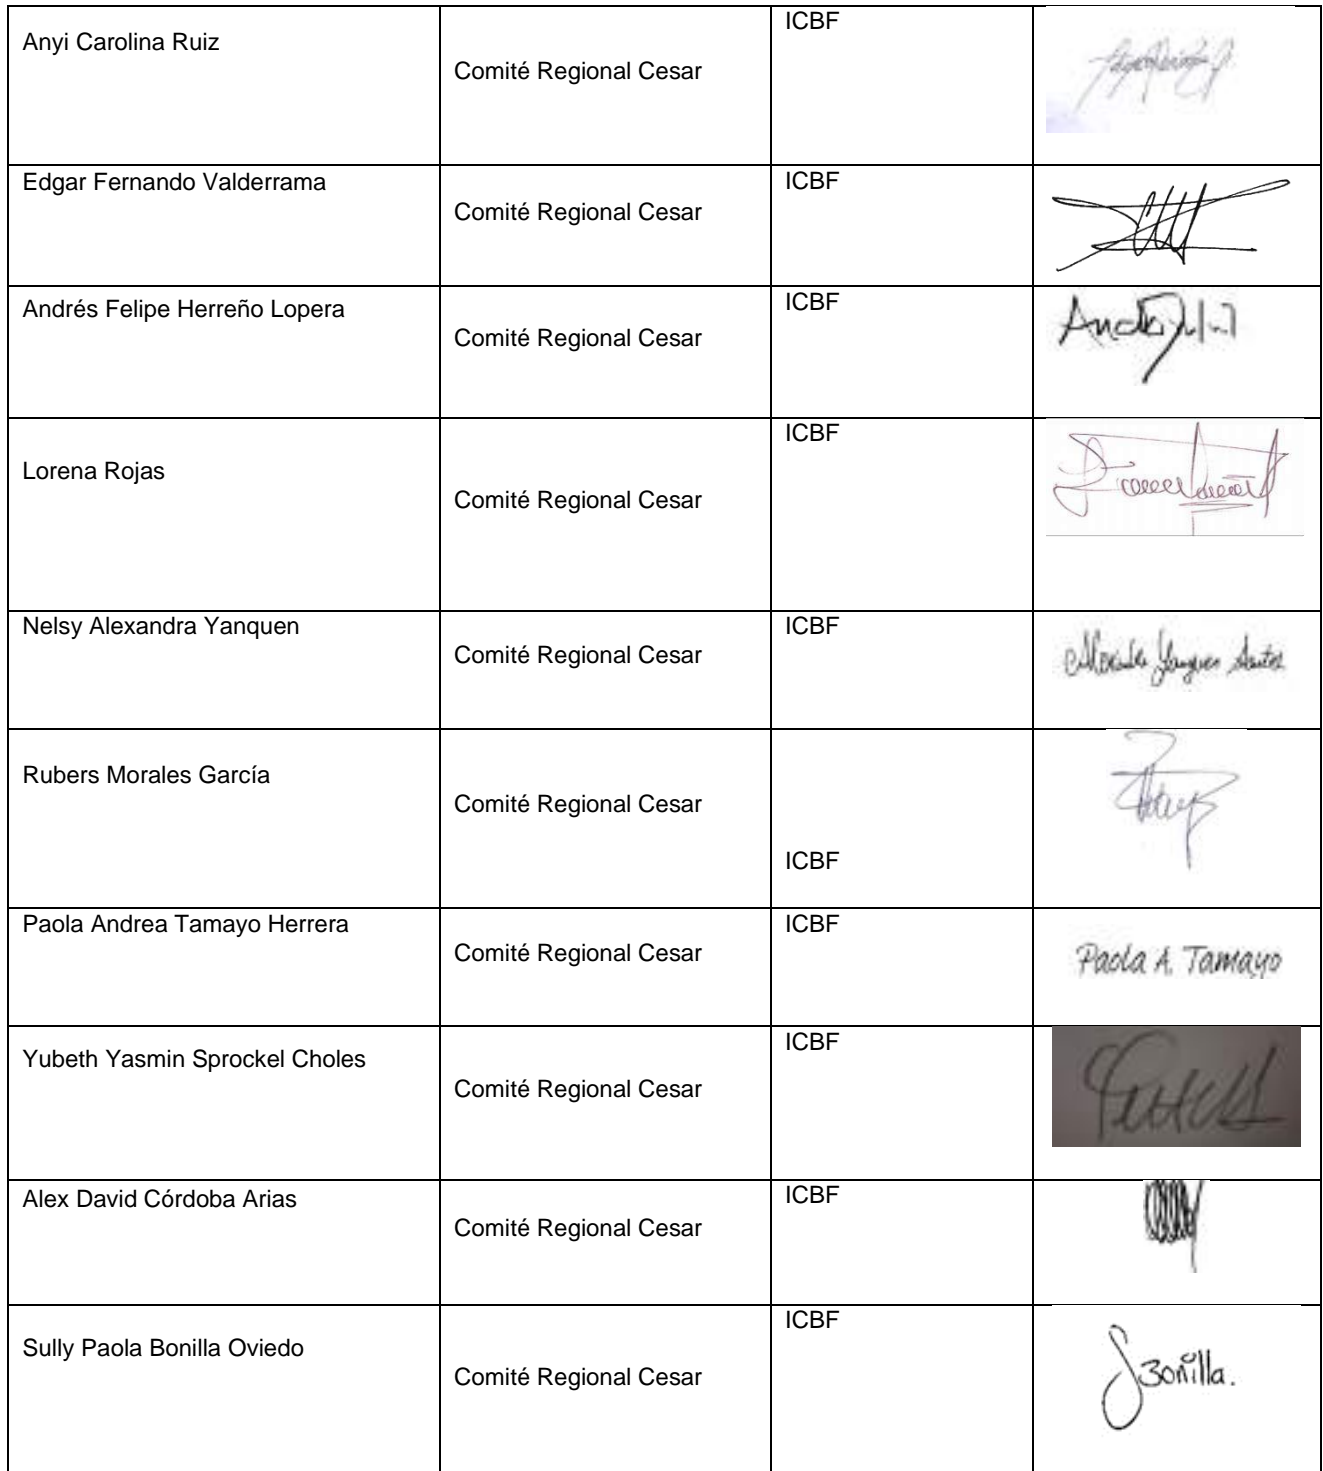 Anyi Carolina Ruiz
Comité Regional Cesar
ICBF
Edgar Fernando Valderrama
Comité Regional Cesar
ICBF
Andrés Felipe Herreño Lopera
Comité Regional Cesar
ICBF
Lorena Rojas
Comité Regional Cesar
ICBF
Nelsy Alexandra Yanquen
Comité Regional Cesar
ICBF
Alexandra Yanquen Santos
Rubers Morales García
Comité Regional Cesar
ICBF
Paola Andrea Tamayo Herrera
Comité Regional Cesar
ICBF
Paola A. Tamayo
Yubeth Yasmin Sprockel Choles
Comité Regional Cesar
ICBF
Alex David Córdoba Arias
Comité Regional Cesar
ICBF
Sully Paola Bonilla Oviedo
Comité Regional Cesar
ICBF
SBonilla.